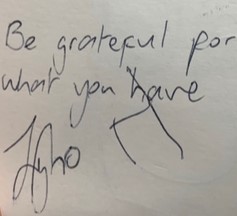 Be grateful for
what you have